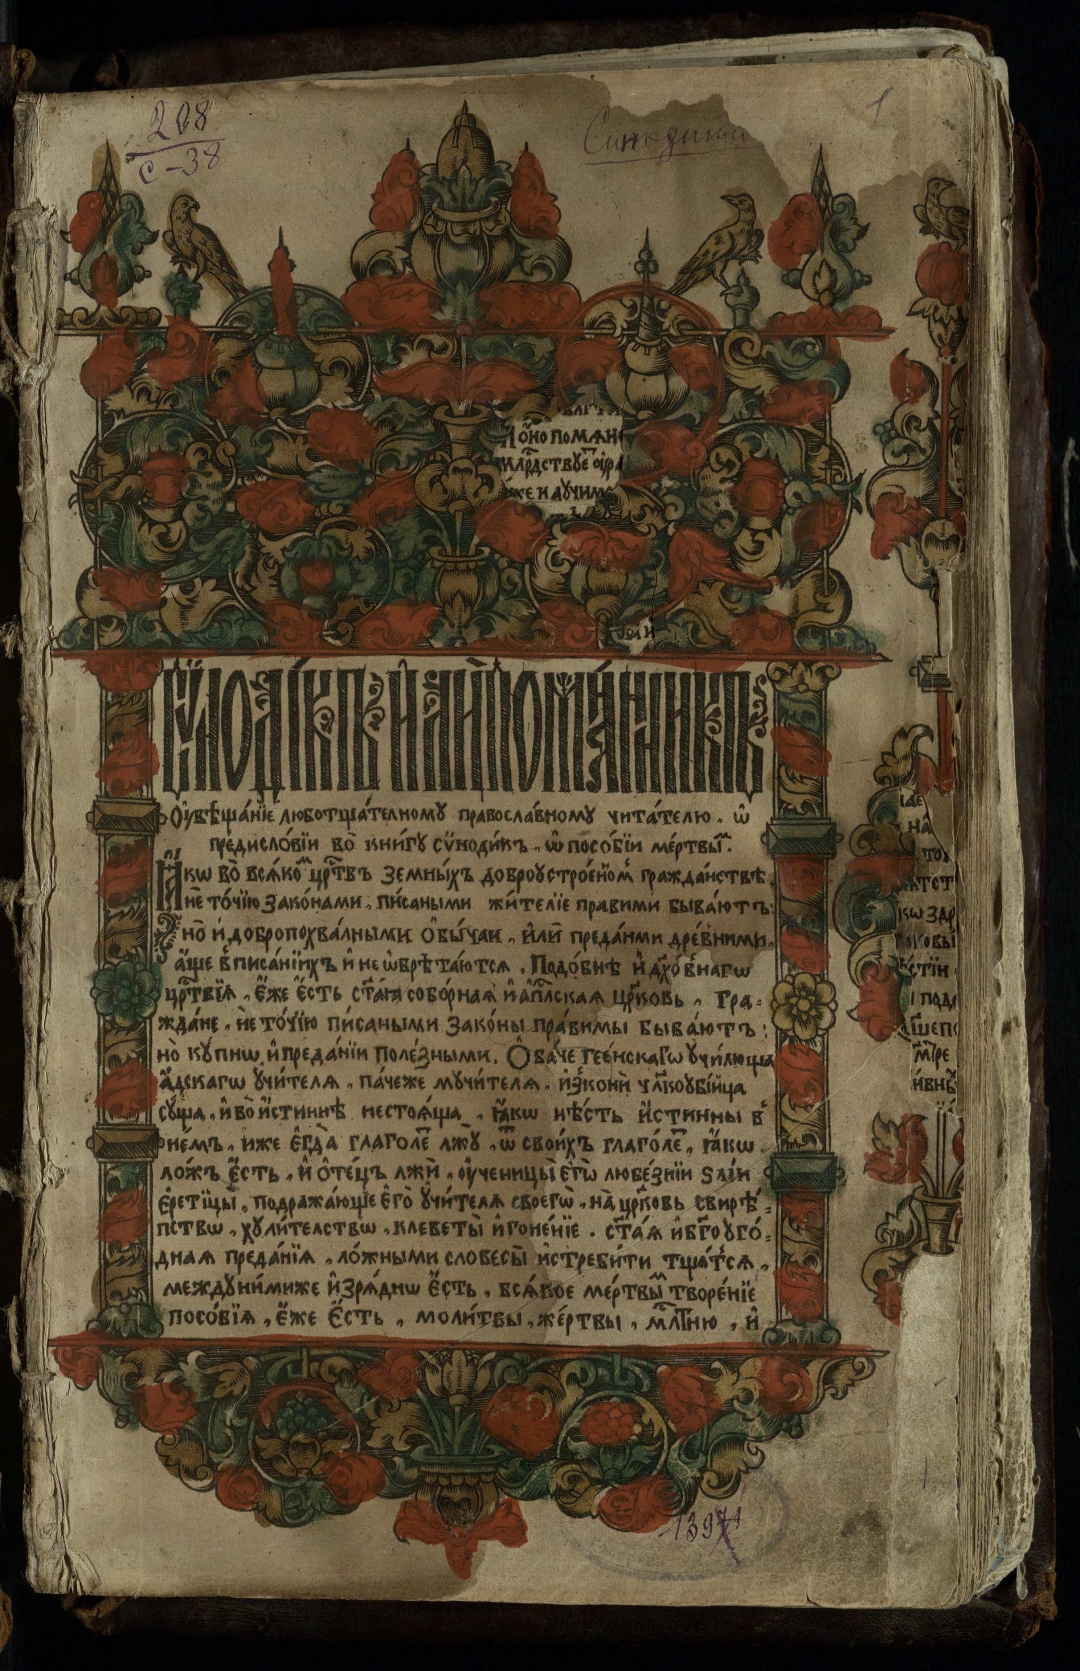 208
С-38
Синодики
1
Ло́но помѧн
же и а҆ учимъ
СѴНОДІ́КЪ И҆ЛЍ ПОМѦ́ННИКЪ
Оу҆вѣща́нїе люботща́телному православному чита́телю. ѡ҆
предисло́вїи во̀ кни́гу сѵноди́къ, ѡ҆ посо́бїи ме́ртвы͏ⷨ.
Ꙗ҆́кѡ во̀ всѧ́коⷨ црⷭ҇твѣ земны́хъ доброустро́еноⷨ гражда́нствѣ,
не то́чїю зако́нами, пи́саными жи́телїе правими быва́ютъ:
но̀ и҆ доброхва́лными ѻ҆бы́чаи, и҆лѝ преда́нми дре́вними,
а҆́ще в писа́нїихъ и҆ не ѡ҆брѣта́ютсѧ. Подо́бнѣ и҆ дх҃о́внагѡ
црⷭ҇твїѧ, є҆́же є҆́сть ст҃а́ѧ собо́рнаѧ и҆ а҆пⷭ҇лскаѧ цр҃ковь, гра-
жда́не, не то́чїю пи́саными зако́ны пра́вимы быва́ютъ:
но̀ купнѡ, и҆ преда́нїи поле́зными. Ѻ҆ба́че гее́нскагѡ учи́лища
а҆́дскагѡ учи́телѧ, па́чеже мучи́телѧ, и҆з̾конѝ чл҃коубі́йца
су́ща, и҆ во̀ и҆́стиннѣ нестоѧ́ща, ꙗ҆́кѡ нѣ́сть и҆́стинны в̾
не́мъ, иже є҆гда̀ глаго́леⷮ лжу̀, ѿ свои́хъ глаго́леⷮ, ꙗ҆́кѡ
ло́жъ є҆́сть, и҆ ѻ҆те́цъ лжѝ, оу҆ченицы̀ є҆гѡ̀ любе́знїи ѕлі́и
є҆рети́цы, подража́юще є҆го̀ у҆чи́телѧ своегѡ̀, на̀ цр҃ковь свирѣ́-
пствѡ, хули́телствѡ, клеветы̀ и҆ гоне́нїе. ст҃а́ѧ и҆ бг҃оуго́-
днаѧ преда́нїѧ, ло́жными словесы̀ и҆стреби́ти тща́тсѧ,
между ни́миже и҆зрѧ́днѡ є҆́сть, всѧ́кое ме́ртвыⷨ творе́нїе
посо́бїѧ, є҆́же є҆́сть, моли́твы, же́ртвы, млⷭ҇тню, и҆
1397